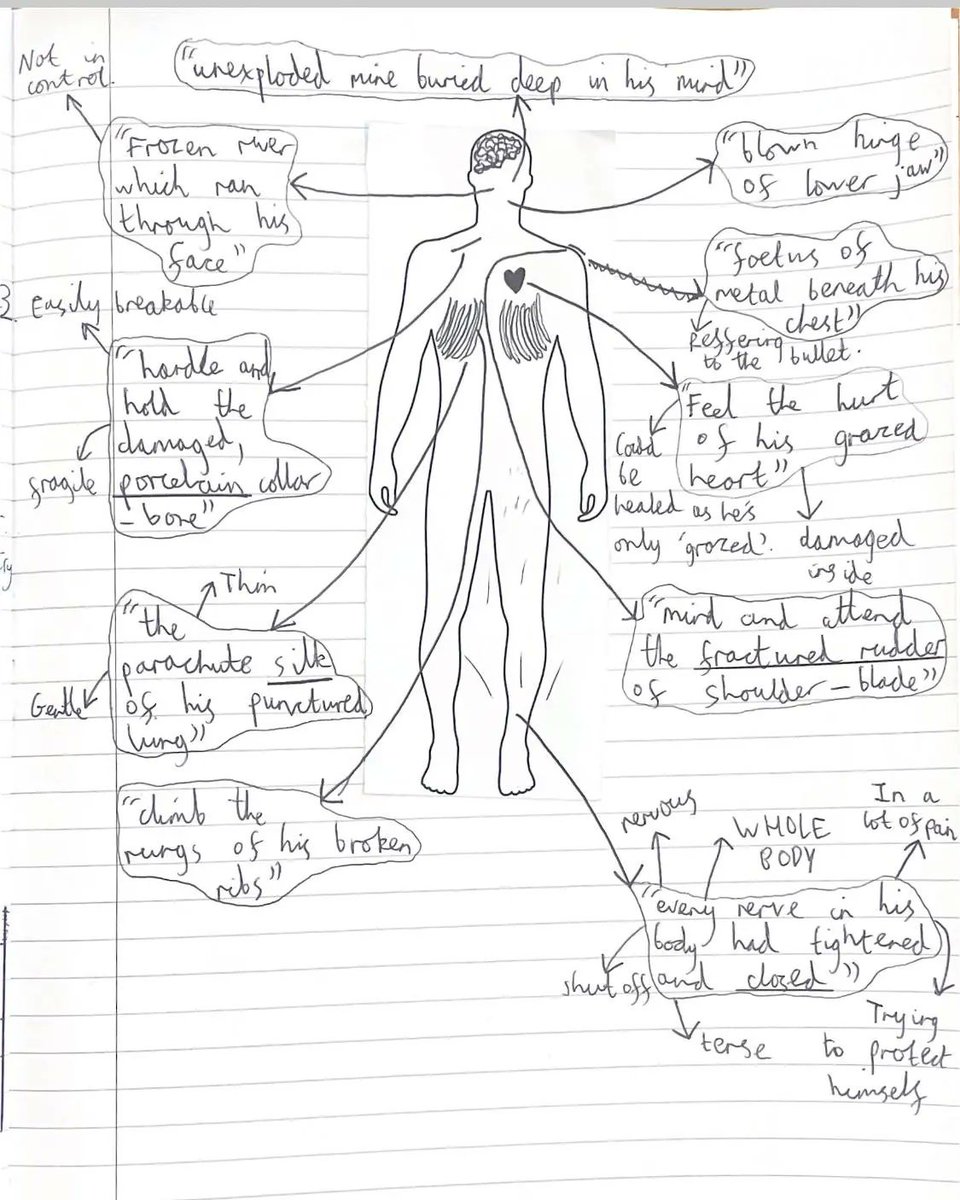 Not in
control.
"unexploded mine buried deep in his mind"
"Frozen river
which ran
through his
face"
"blown hinge
of lower jaw"
"foetus of
metal beneath his
chest"
Reffering
to the bullet.
Easily breakable
"handle and
hold the
damaged,
porcelain collar
-bone"
fragile
"Feel the hurt
of his grazed
heart"
Could
be
healed as he's
only 'grazed'.
damaged
inside
Thin
"the
parachute silk
of his punctured
lung"
Gentle
"mind and attend
the fractured rudder
of shoulder-blade"
"climb the
rungs of his broken
ribs"
nervous
WHOLE
BODY
In a
lot of pain
"every nerve in his
body had tightened
and closed"
shut off
tense
Trying
to protect
himself